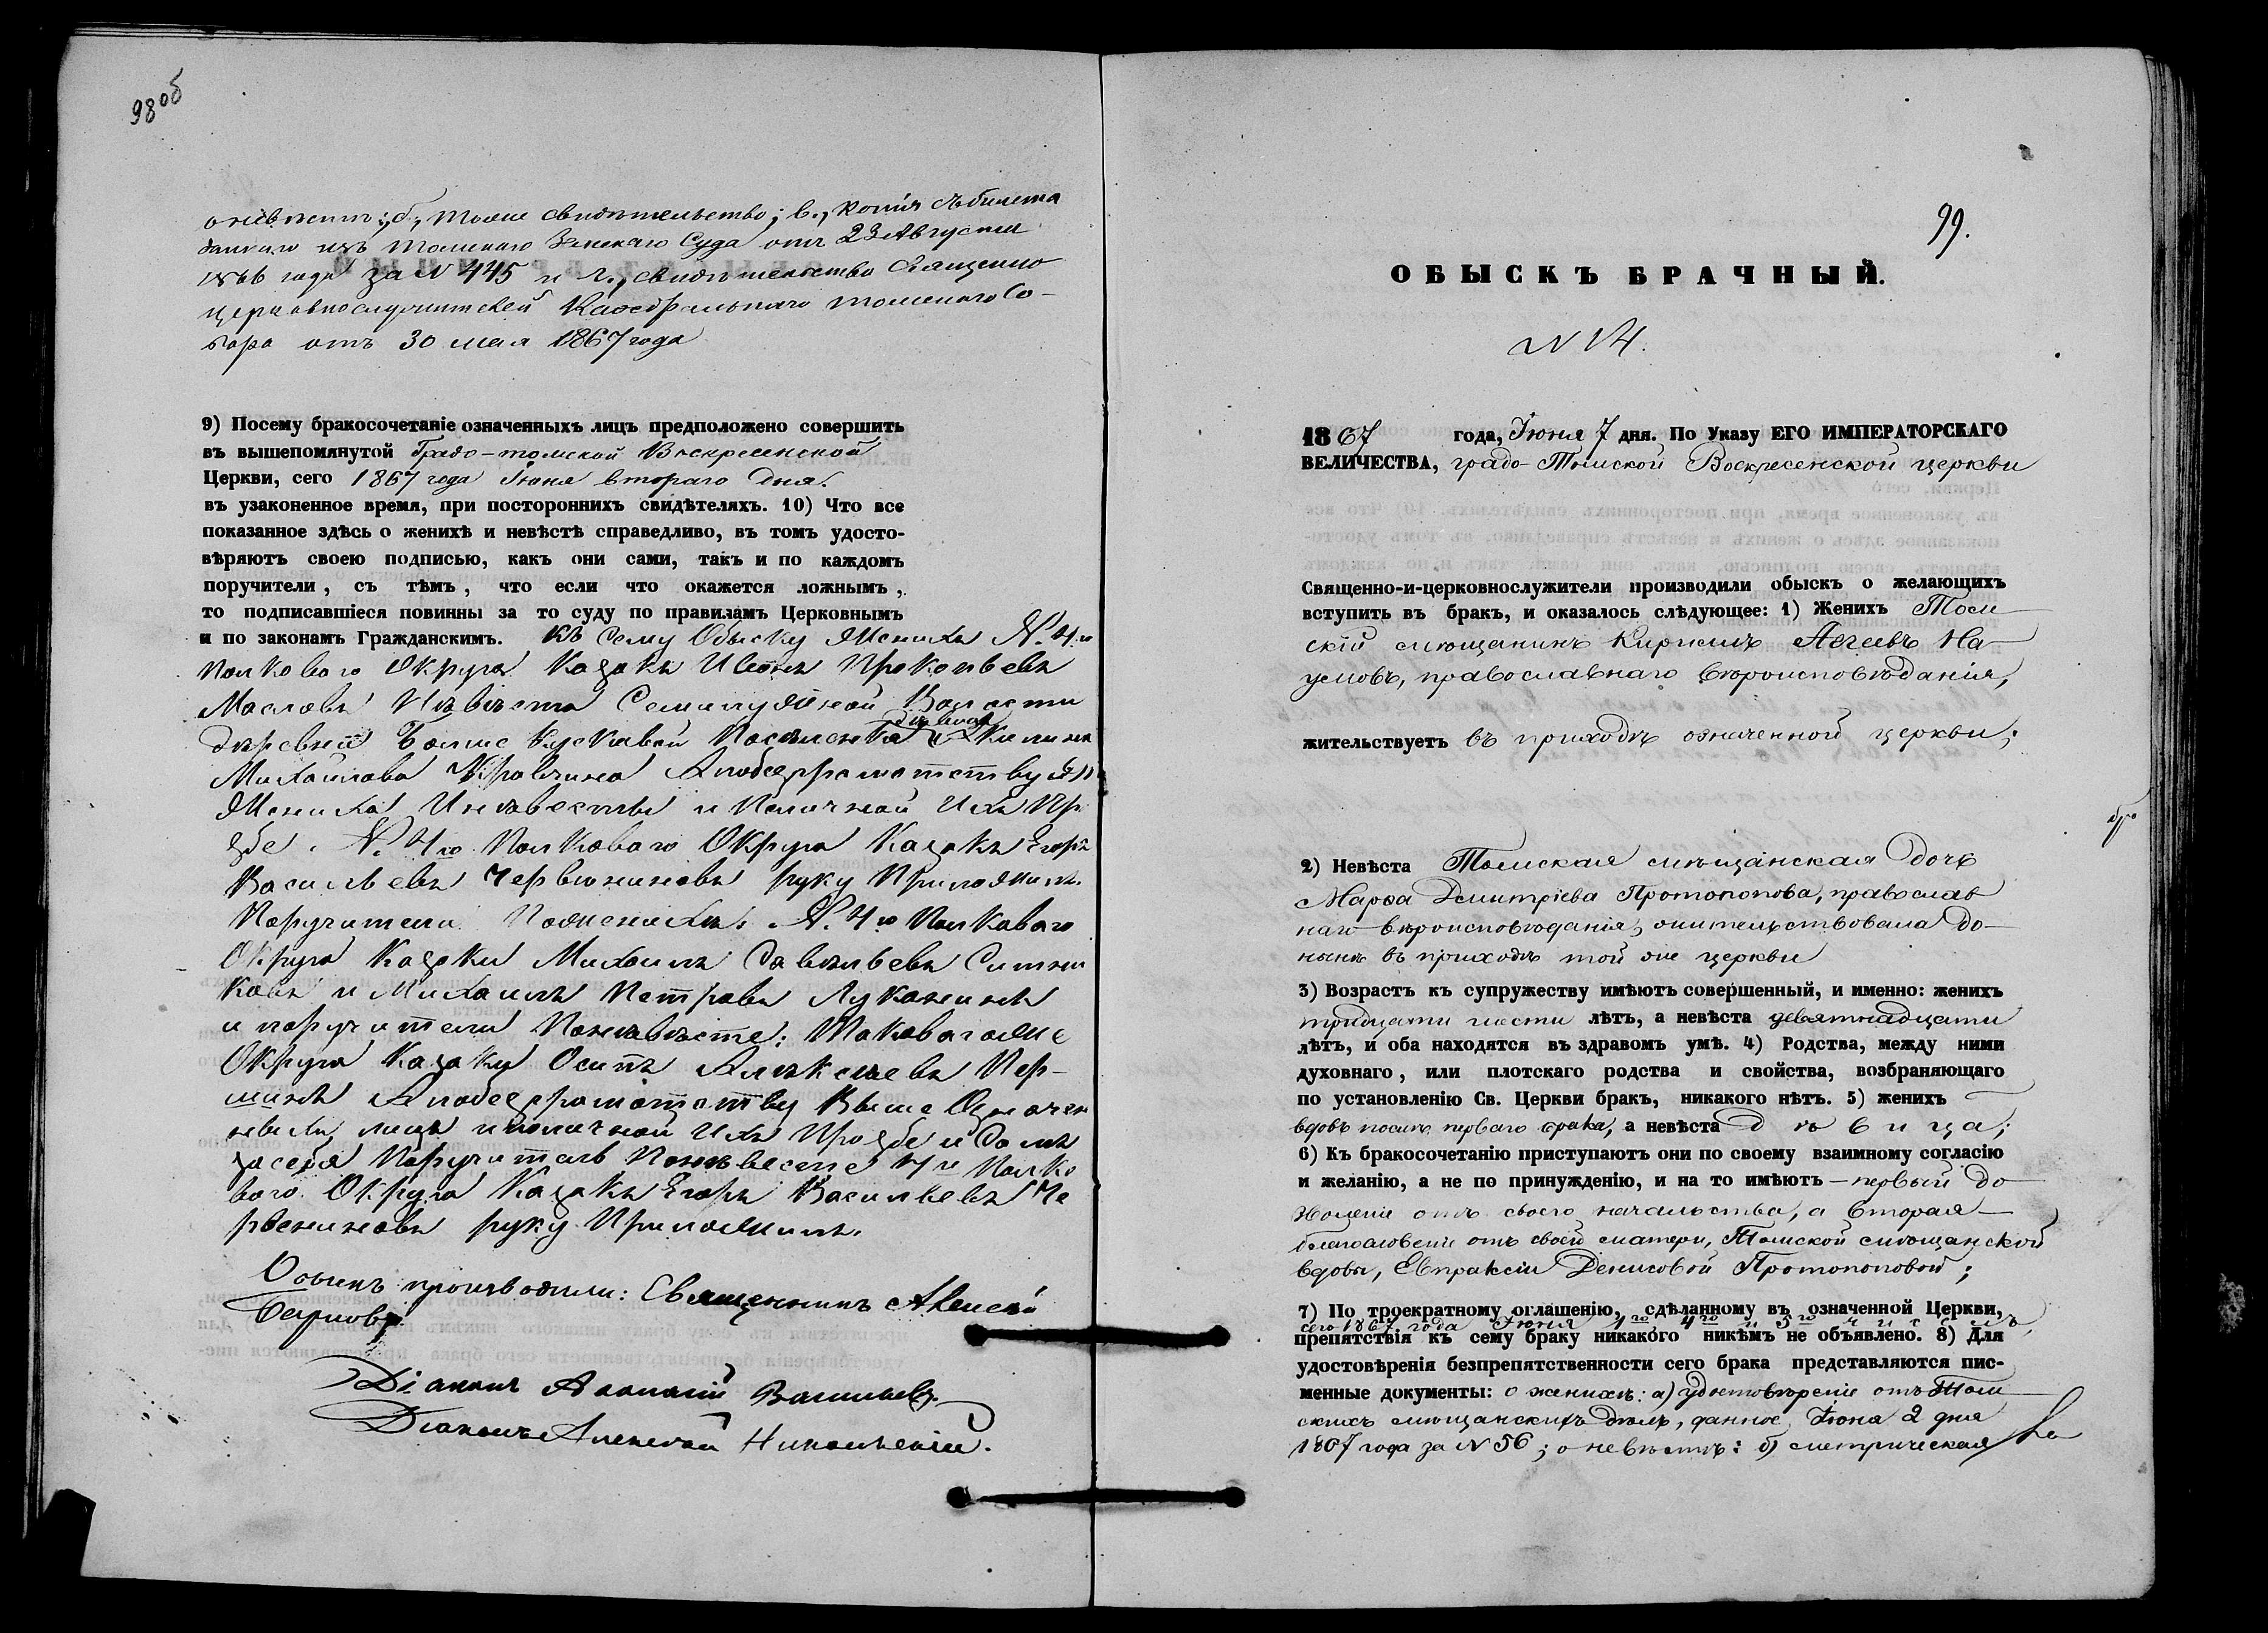 98 об
о невѣстѣ: б, тоже свидѣтельство; в., копія съ билета
даннаго изъ Томскаго Земскаго Суда отъ 23 Августа
1866 года за N 445 и г., свидѣтельство Священно
церковнослужителей Каѳедральнаго Томскаго Со-
бора отъ 30 мая 1867 года
9) Посему бракосочетаніе означенныхъ лицъ предположено совершить
въ вышепомянутой Градо-Томской Воскресенской
Церкви, сего 1867 года Іюня втораго дня.
въ узаконенное время, при постороннихъ свидѣтеляхъ. 10) Что все
показанное здѣсь о женихѣ и невѣстѣ справедливо, въ томъ удосто-
вѣряютъ своею подписью, какъ они сами, такъ и по каждомъ
поручители, съ тѣмъ, что если что окажется ложнымъ,
то подписавшіеся повинны за то суду по правиламъ Церковнымъ
и по законамъ Гражданскимъ. Къ сему Обыску Женихъ N. 4го
Полковаго Округа Казакъ Иванъ Прокопьевъ
Масловъ Невѣста Семилужной Волости
девица
деревни Поселенка Акилина
Михайлова Кравчина Апобезграмотству
Жениха Иневесты и Поличной Ихъ Пр
збе. N. 4го Полковаго Округа Казакъ Егоръ
Васильевъ Червюниновъ руку Приложилъ.
Поручители Поженихѣ: N. 4го Полковаго
Округа Казаки Михаилъ Савельевъ Ситни
ковъ и Михаилъ Петровъ Луконинъ
и поручители Поневѣсте: Таковагоже
Округа Казаки Осипъ Алексѣевъ Пер-
шинъ Апобезграмотству Выше Озночен
ныхъ лицъ иполичной Ихъ Прозбе и Самъ
засебя Поручитель Поневесте 4го Полко
ваго Округа Казакъ Егоръ Васильевъ Че
рвениновъ руку Приложилъ.
Обыскъ производили: Священникъ Алексѣй
Діаконъ Васильевъ
Діаконъ Алексѣй Никольскій.
99.
ОБЫСКЪ БРАЧНЫЙ.
N 14.
1867 года, Іюня 7 дня. По Указу ЕГО ИМПЕРАТОРСКАГО
ВЕЛИЧЕСТВА, градо-Томской Воскресенской церкви
Священно-и-церковнослужители производили обыскъ о желающихъ
вступить въ бракъ, и оказалось слѣдующее: 1) Женихъ Том-
скій мѣщанинъ Кирилъ Агеевъ На-
умовъ, православнаго вѣроисповѣданія,
жительствуетъ въ приходѣ означенной церкви;
2) Невѣста Томская мѣщанская дочь
Марѳа Дмитріева Протопопова, православ
наго вѣроисповѣданія, жительствовала до-
нынѣ въ приходѣ той же церкви
3) Возрастъ къ супружеству имѣютъ совершенный, и именно: женихъ
тридцати шести лѣтъ, а невѣста девятнадцати
лѣтъ, и оба находятся въ здравомъ умѣ. 4) Родства, между ними
духовнаго, или плотскаго родства и свойства, возбраняющаго
по установленію Св. Церкви бракъ, никакого нѣтъ. 5) женихъ
вдовъ послѣ перваго брака, а невѣста дѣвица;
6) Къ бракосочетанію приступаютъ они по своему взаимному согласію
и желанію, а не по принужденію, и на то имѣютъ - первый до
зволеніе отъ своего начальства, а вторая -
благословеніе отъ своей матери, Томской мѣщанской
вдовы, Евпраксіи Денисовой Протопоповой;
7) По троекратному оглашенію, сдѣланному въ означенной Церкви,
сего 1867 года Іюня 1го 4го и 5го чиселъ,
препятствія къ сему браку никакого никѣмъ не объявлено. 8) Для
удостовѣренія безпрепятственности сего брака представляются пис-
менные документы: о женихѣ: а) удостовѣреніе отъ Том
скихъ мѣщанскихъ дѣлъ, данное Іюня 2 дня
1867 года за N 56; о невѣстѣ: б) метрическая